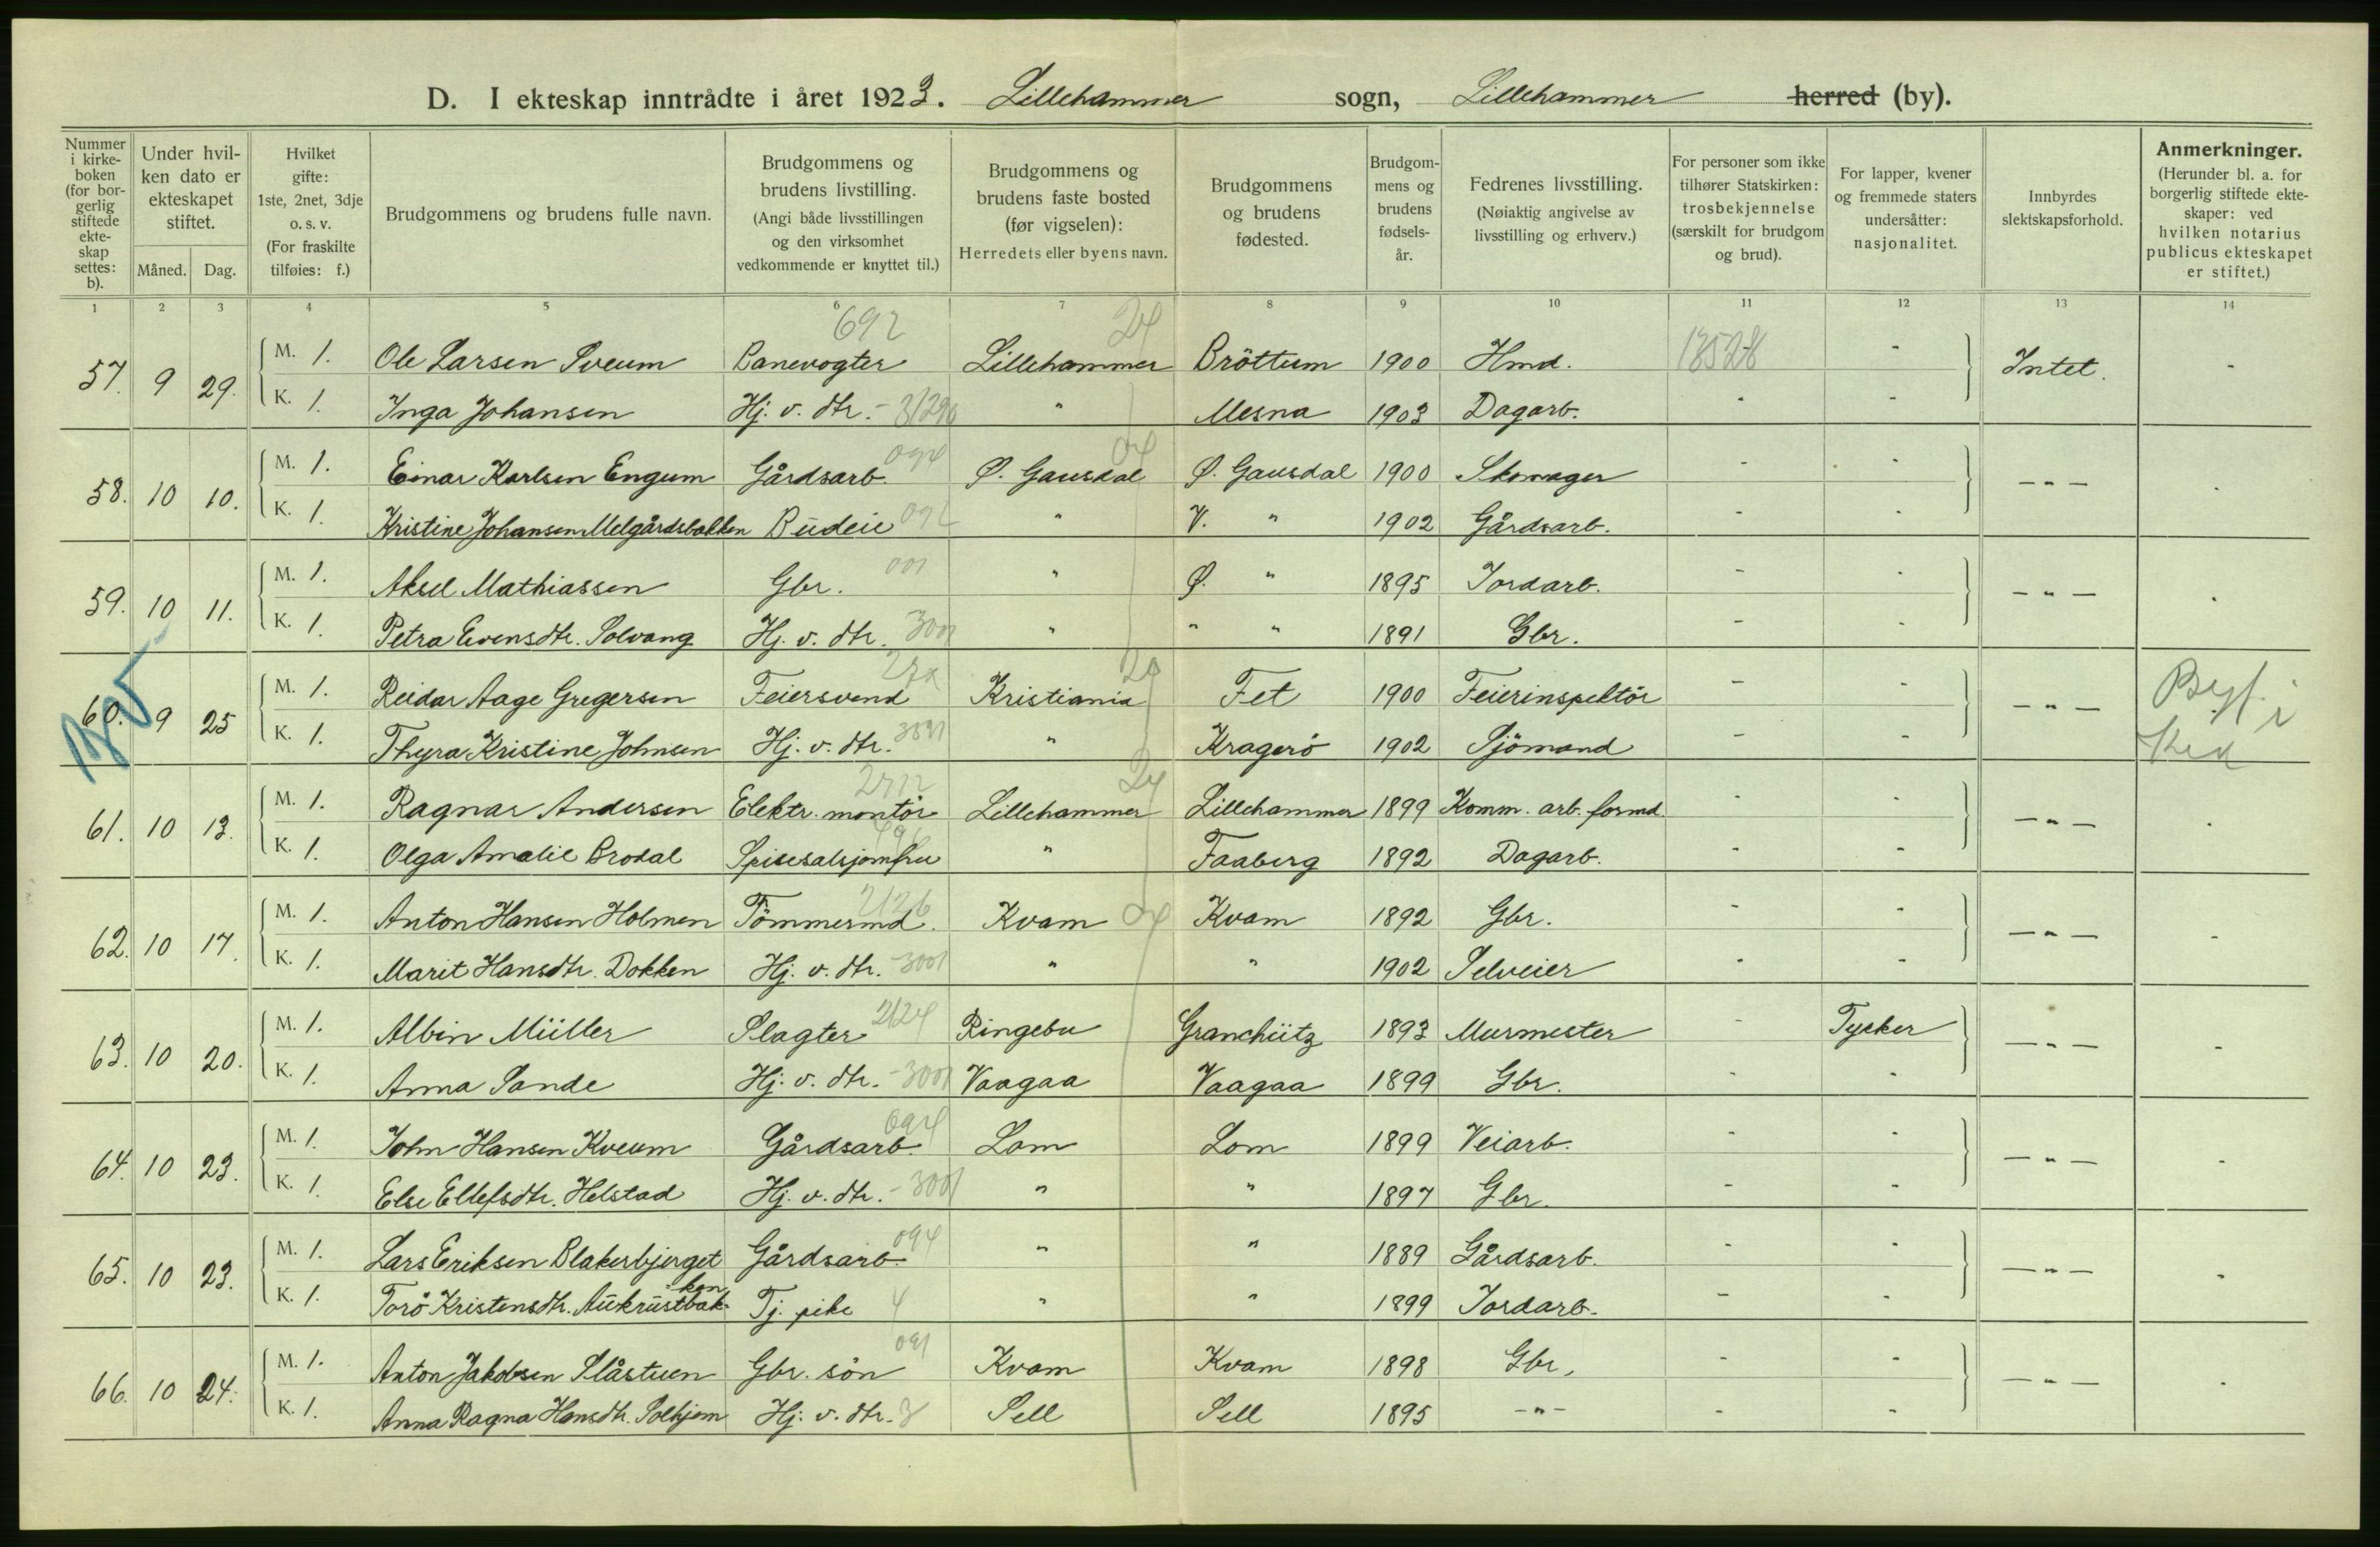 D. I ekteskap inntrådte i året 1923. Lillehammer sogn, Lillehammer herred (by).
Nummer i kirkeboken (for borgerlig stiftede ekteskap settes: b).
Under hvilken dato er ekteskapet stiftet.
Måned. Dag.
Hvilket gifte: 1ste, 2net, 3dje o. s. v. (For fraskilte tilføies: f.)
Brudgommens og brudens fulle navn.
Brudgommens og brudens livstilling. (Angi både livsstillingen og den virksomhet vedkommende er knyttet til.)
Brudgommens og brudens faste bosted (før vigselen): Herredets eller byens navn.
Brudgommens og brudens fødested.
Brudgommens og brudens fødselsår.
Fedrenes livsstilling. (Nøiaktig angivelse av livsstilling og erhverv.)
For personer som ikke tilhører Statskirken: trosbekjennelse (særskilt for brudgom og brud).
For lapper, kvener og fremmede staters undersåtter: nasjonalitet.
Innbyrdes slektskapsforhold.
Anmerkninger. (Herunder bl. a. for borgerlig stiftede ekteskaper: ved hvilken notarius publicus ekteskapet er stiftet.)
1 2 3 4 5 6 7 8 9 10 11 12 13 14
692 24
57. 9 29. M. 1. Ole Larsen Sveum Banevogter Lillehammer Bröttum 1900 Hmd. - Intet. -
K. 1. Inga Johansen Hj. v. dtr. - " Mesna 1903 Dagarb. - -
58. 10 10. M. 1. Einar Karlsen Engum Gårdsarb. Ø. Gausdal Ø. Gausdal 1900 Skomager - - — " — -
K. 1. Kristine Johansen Melgårdsbakken Budeie " V. " 1902 Gårdsarb. - -
59. 10 11. M. 1. Aksel Mathiassen Gbr. " Ø. " 1895 Jordarb. - - — " — -
K. 1. Petra Evensdtr. Solvang Hj. v. dtr. " " " 1891 Gbr. - -
60. 9 25 M. 1. Reidar Aage Gregersen Feiersvend Kristiania Fet 1900 Feierinspektör - - — " —
K. 1. Thyra Kristine Johnsen Hj. v. dtr. " Kragerö 1902 Sjömand - -
61. 10 13. M. 1. Ragnar Andersen Elektr. montör Lillehammer Lillehammer 1899 Komm. arb. formd. - - — " — -
K. 1. Olga Amalie Brodal Spisesalsjomfru " Faaberg 1892 Dagarb. - -
62. 10 17. M. 1. Anton Hansen Holmen Tömmermd. Kvam Kvam 1892 Gbr. - - — " — -
K. 1. Marit Hansdtr. Dokken Hj. v. dtr. " " 1902 Selveier - -
63. 10 20. M. 1. Albin Müller Slagter 2124 Ringebu Granchütz 1893 Murmester - Tysker — " — -
K. 1. Anna Sande Hj. v. dtr. - Vaagaa Vaagaa 1899 Gbr. - -
64. 10 23. M. 1. John Hansen Kveum Gårdsarb. Lom Lom 1899 Veiarb. - - — " — -
K. 1. Else Ellefsdtr. Helstad Hj. v. dtr. - " " 1897 Gbr. - -
65. 10 23. M. 1. Lars Eriksen Blakerbjerget Gårdsarb. " " 1889 Gårdsarb. - - — " — -
K. 1. Torö Kristensdtr. Aukrustbakken Tj. pike " " 1899 Jordarb. - -
66. 10 24. M. 1. Anton Jakobsen Slåstuen Gbr. sön Kvam Kvam 1898 Gbr. - - — " — -
K. 1. Anna Ragna Hansdtr. Solhjem Hj. v. dtr. Sell Sell 1895 - " - - -